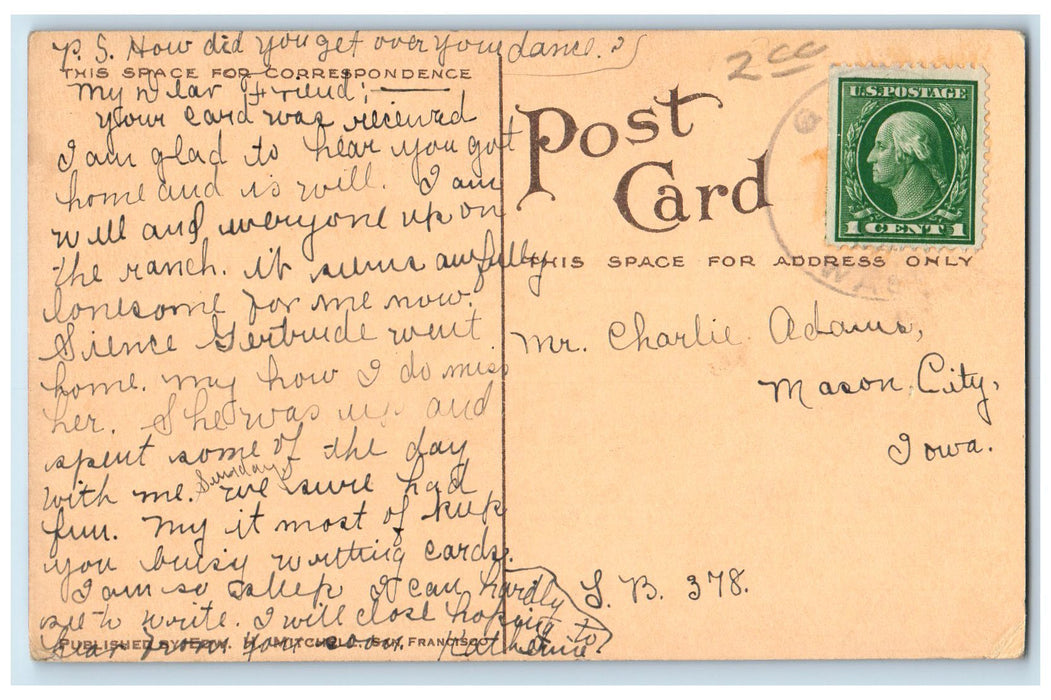 P.S. How did you get over your dance?
THIS SPACE FOR CORRESPONDENCE
My Dear Friend;
Your card was received
I am glad to hear you got
home and is will. I am
will and everyone up on
the ranch. it seems awfully
lonesome for me now.
Sience Gertrude went
home. My how I do miss
her. She was up and
spent some of the day
with me. Sunday we sure had
fun. My it most of keep
you buisy writting cards.
I am so sleep I can hardly
see to write. I will close hoping to
hear from you soon. Katherine
PUBLISHED BY EDW. H. MITCHELL, SAN FRANCISCO
2cc
Post
Card
U.S. POSTAGE
1 CENT 1
WAS
THIS SPACE FOR ADDRESS ONLY
Mr. Charlie Adams,
Mason City,
Iowa.
L. B. 378.